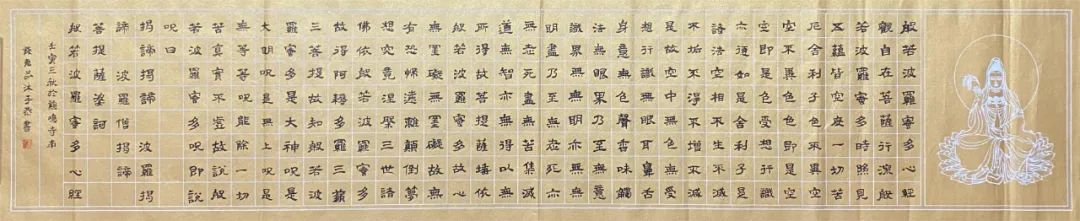 般若波羅蜜多心經
觀自在菩薩行深般
若波羅蜜多時照見
五蘊皆空度一切苦
厄舍利子色不異空
空不異色色即是空
空即是色受想行識
亦復如是舍利子是
諸法空相不生不滅
不垢不淨不增不減
是故空中無色無受
想行識無眼耳鼻舌
身意無色聲香味觸
法無眼界乃至無意
識界無無明亦無無
明盡乃至無老死亦
無老死盡無苦集滅
道無智亦無得以無
所得故菩提薩埵依
般若波羅蜜多故心
無罣礙無罣礙故無
有恐怖遠離顛倒夢
想究竟涅槃三世諸
佛依般若波羅蜜多
故得阿耨多羅三藐
三菩提故知般若波
羅蜜多是大神呪是
大明呪是無上呪是
無等等呪能除一切
苦真實不虛故說般
若波羅蜜多呪即說
呪曰
揭諦揭諦 波羅揭
諦 波羅僧揭諦
菩提薩婆訶
般若波羅蜜多心經
壬寅三秋於鳴寺南
沐手恭書